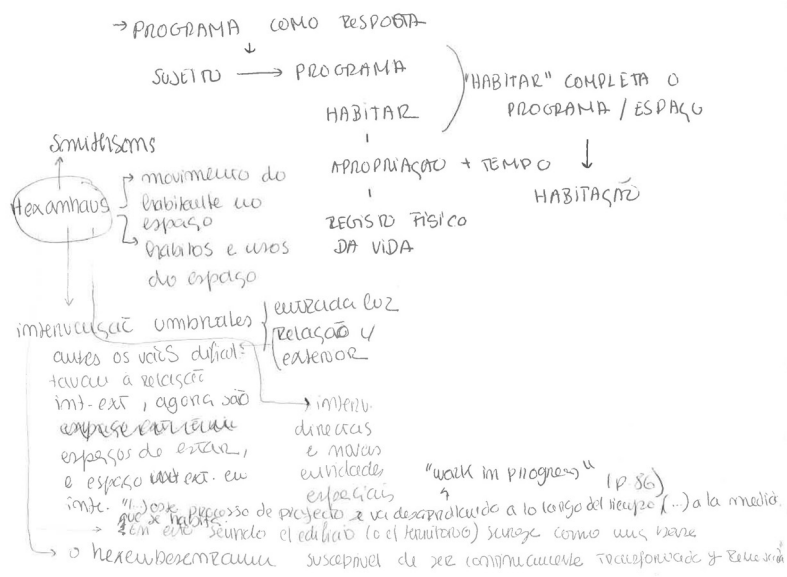 → PROGRAMA COMO RESPOSTA
SUJEITO → PROGRAMA
HABITAR
APROPRIAÇÃO + TEMPO
REGISTO FÍSICO
DA VIDA
"HABITAR" COMPLETA O
PROGRAMA / ESPAÇO
HABITAÇÃO
Smithsons
Hexanhaus
movimento do
habitante no
espaço
habitos e usos
do espaço
intervenção umbrales
entrada luz
relação c/
exterior
antes os vãos dificul-
tavam a relação
int-ext, agora são
espaços de estar,
e espaço ext. em
inte.
interv.
directas
e novas
entidades
espaciais
"work in progress"
(p. 86)
"(...) este processo de projecto se va desarrollando a lo largo del tiempo (...) a la medida
que se habita.
En este sentido el edificio (o el territorio) surge como una base
o hexenbesenraum susceptivel de ser continuamente transformado y